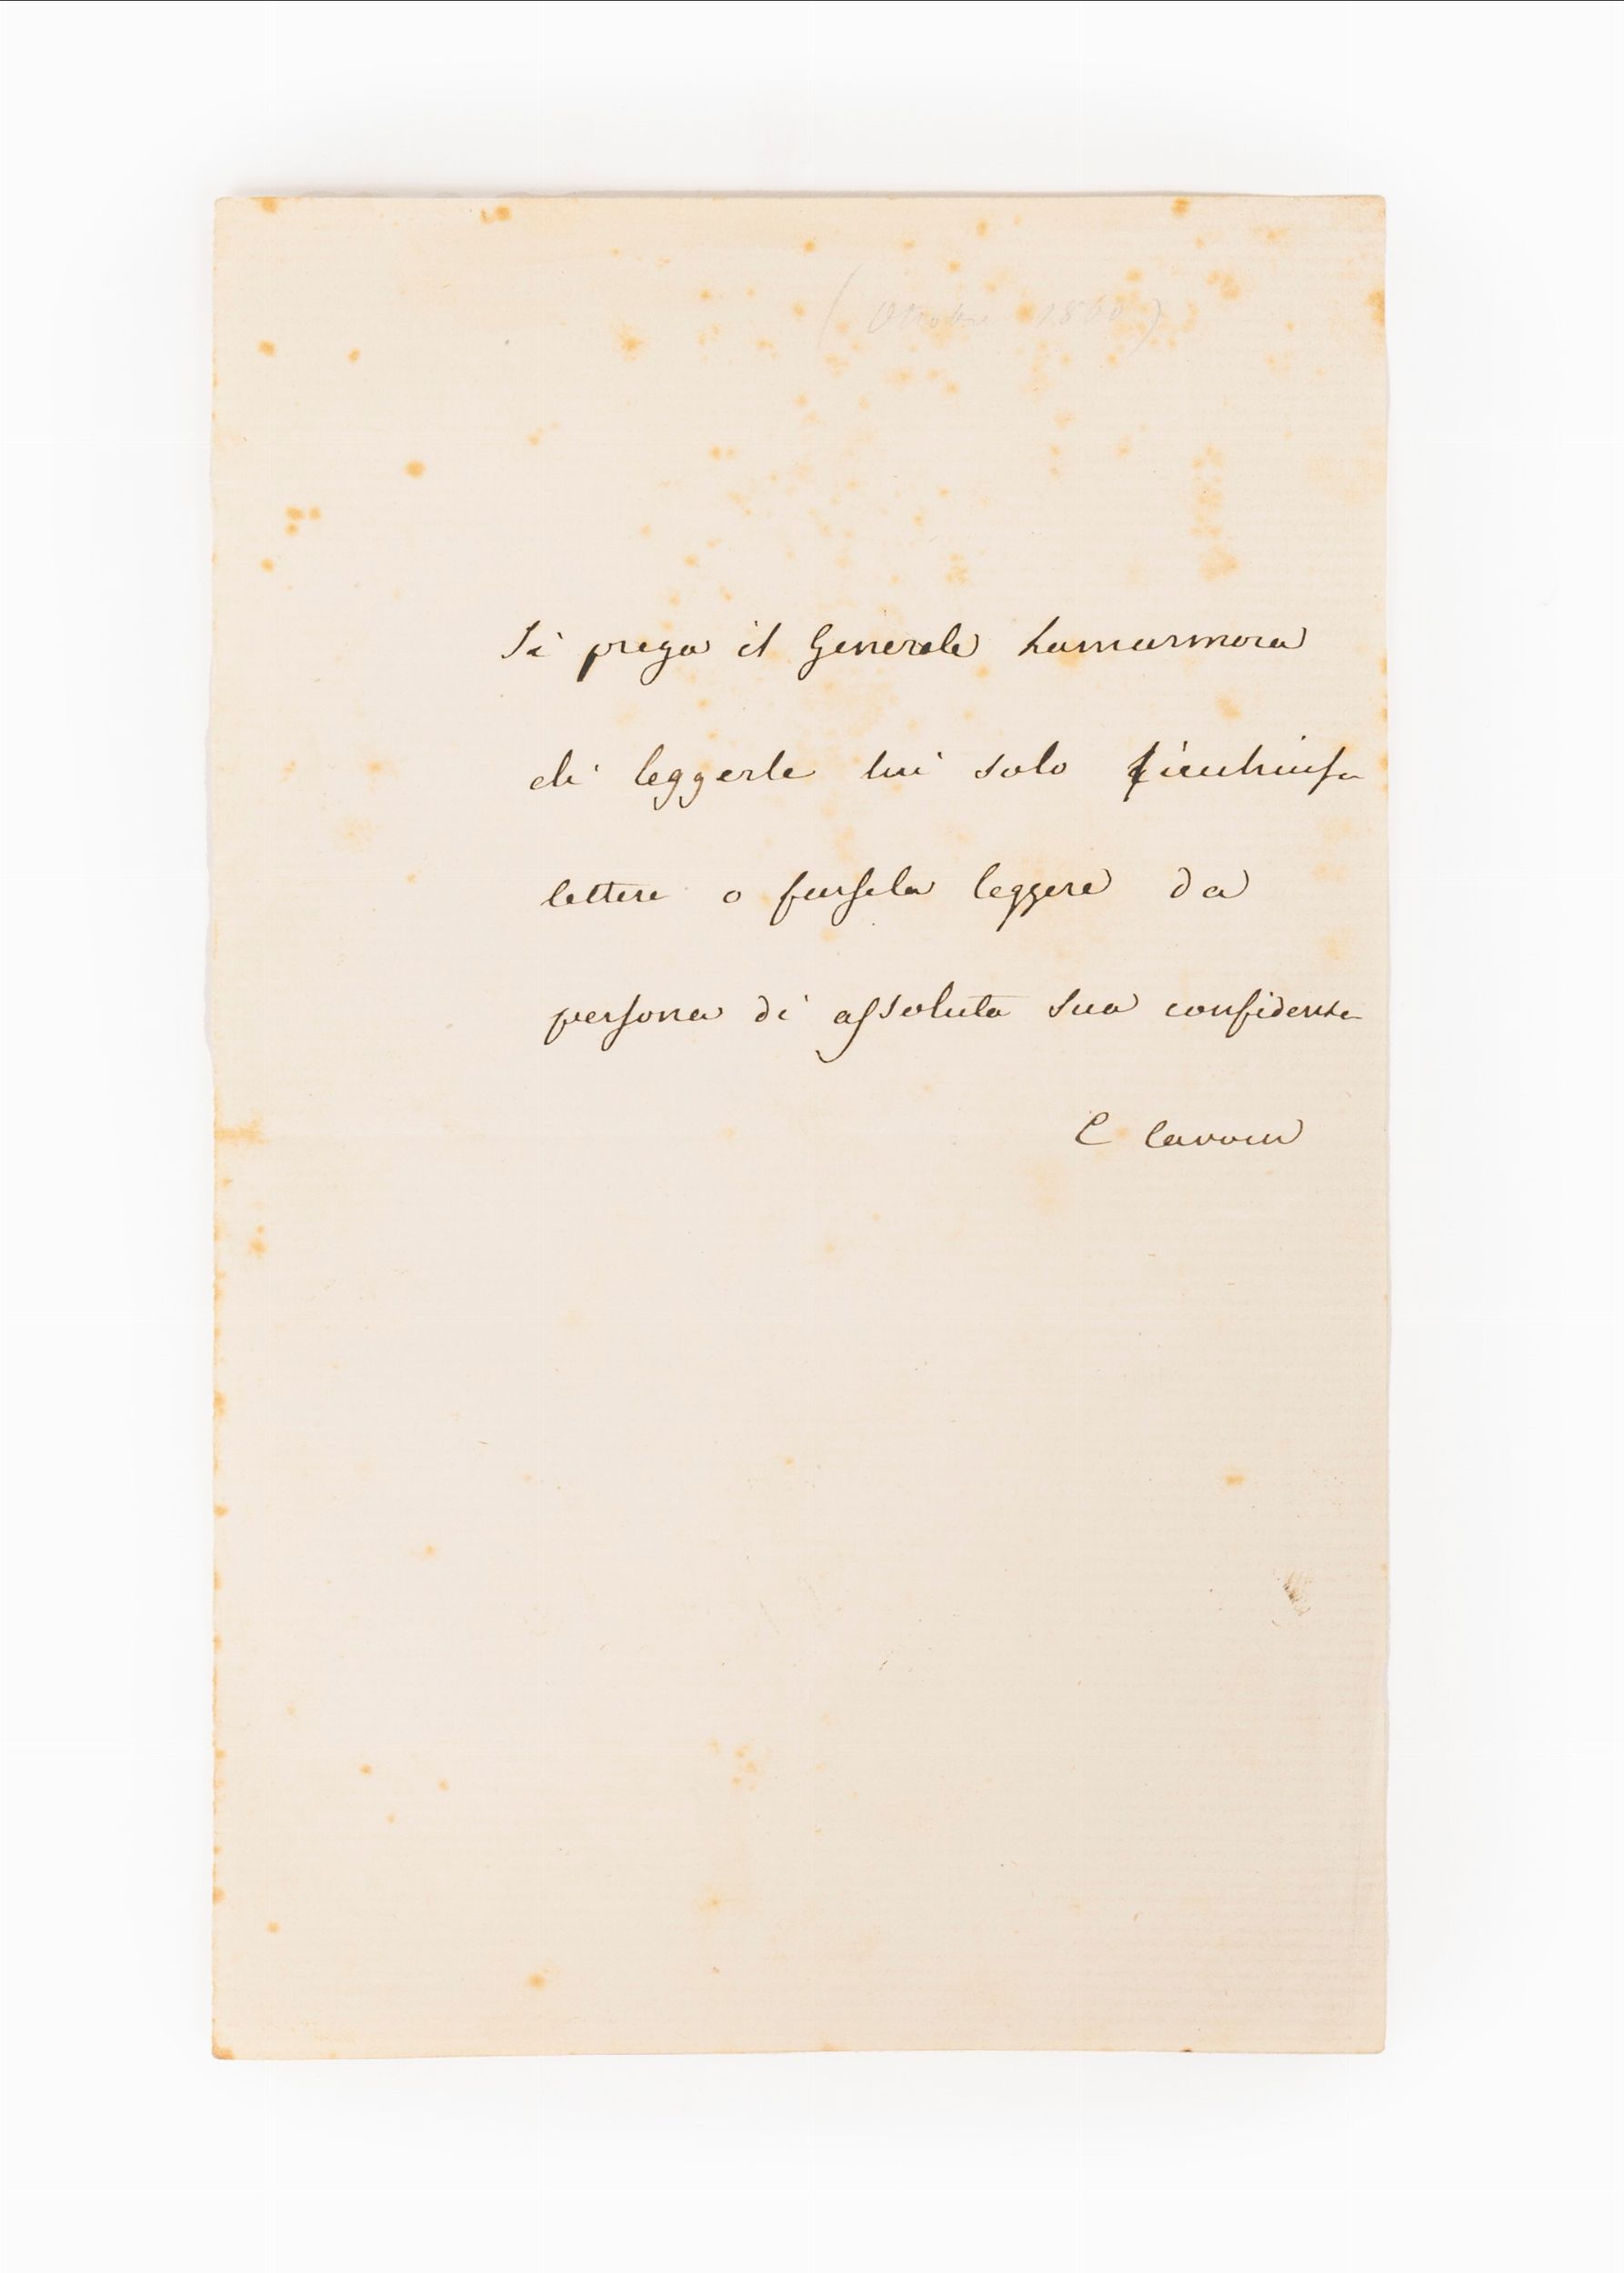 (Ottobre 1860)
Si prega il Generale Lamarmora
di leggerle lui solo l'inchiusa
lettere o farsela leggere da
persona di assoluta sua confidenza
C Cavour